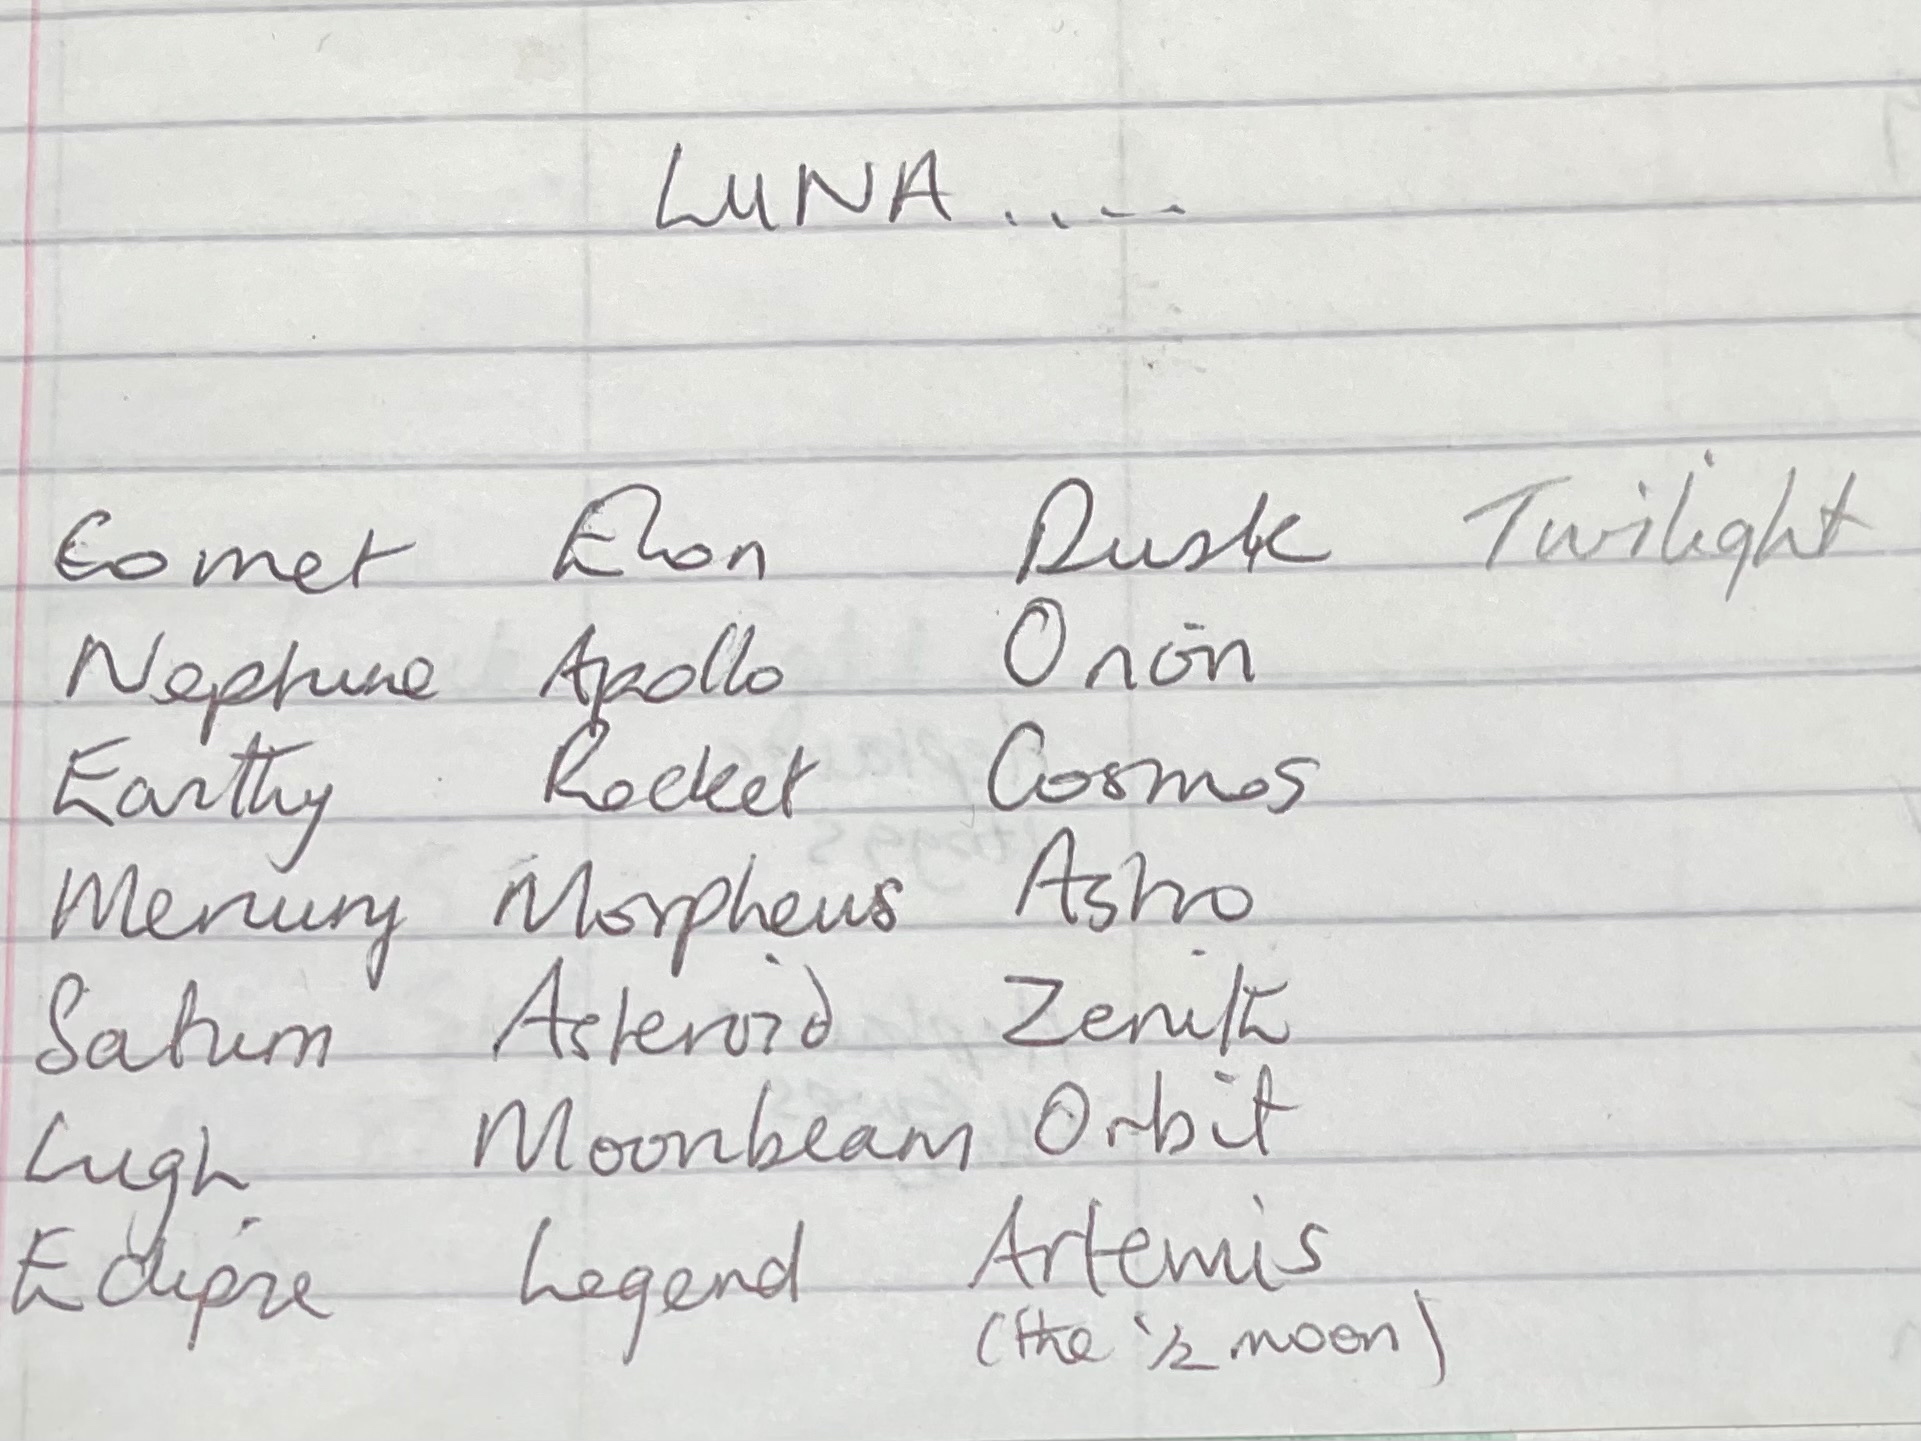 LUNA.....
Comet Elon Dusk Twilight
Neptune Apollo Orion
Earthy Rocket Cosmos
Mercury Morpheus Astro
Saturn Asteroid Zenith
Lugh Moonbeam Orbit
Eclipse Legend Artemis
(the ½ moon)